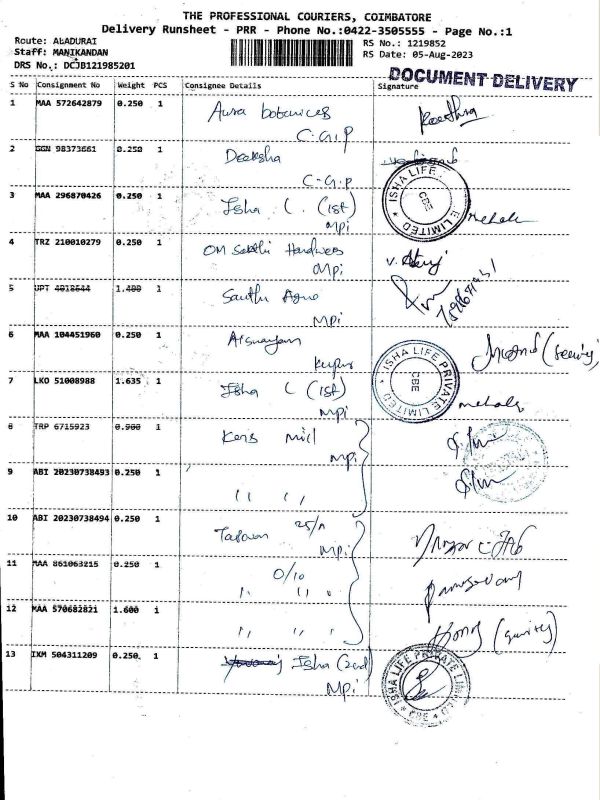 THE PROFESSIONAL COURIERS, COIMBATORE
Delivery Runsheet - PRR - Phone No.:0422-3505555 - Page No.:1
Route: ALADURAI
RS No.: 1219852
Staff: MANIKANDAN
RS Date: 05-Aug-2023
DRS No.: DCJB121985201
DOCUMENT DELIVERY
S No Consignment No Weight PCS Consignee Details Signature
1 MAA 572642879 0.250 1 Aura botanices
C.G.P
2 GGN 98373661 0.250 1 Deeksha
C-G.P
3 MAA 296870426 0.250 1 Isha L. (1st)
MPi
ISHA LIFE PRIVATE LIMITED CBE
4 TRZ 210010279 0.250 1 OM Sakthi Hardwees
MPi
5 UPT 4018644 1.400 1 Santhi Agno
MPi
6 MAA 104451960 0.250 1
ISHA LIFE PRIVATE LIMITED CBE
(secuity)
7 LKO 51008988 1.635 1 Isha L (1st)
MPi
8 TRP 6715923 0.900 1 Kers mill
MPi
9 ABI 20230738493 0.250 1 " "
10 ABI 20230738494 0.250 1 25/A
MPi
11 MAA 861063215 0.250 1 0/10
" "
12 MAA 570682821 1.600 1 " " "
13 IXM 504311209 0.250 1 Isha (2nd)
MPi
ISHA LIFE PRIVATE LIMITED CBE